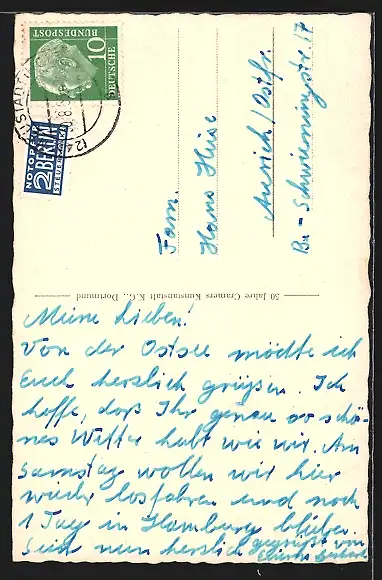 DEUTSCHE
BUNDESPOST
10
NOTOPFER
2 BERLIN
STEUERMARKE
Fam.
Hans Huse
Aurich/Ostfr.
50 Jahre Cramers Kunstanstalt K.G., Dortmund
Meine Lieben!
Von der Ostsee möchte ich
Euch herzlich grüßen. Ich
hoffe, daß Ihr genau so schö-
nes Wetter habt wie wir. Am
Samstag wollen wir hier
wieder losfahren und noch
1 Tag in Hamburg bleiben.
Seid nun herzlich gegrüßt von